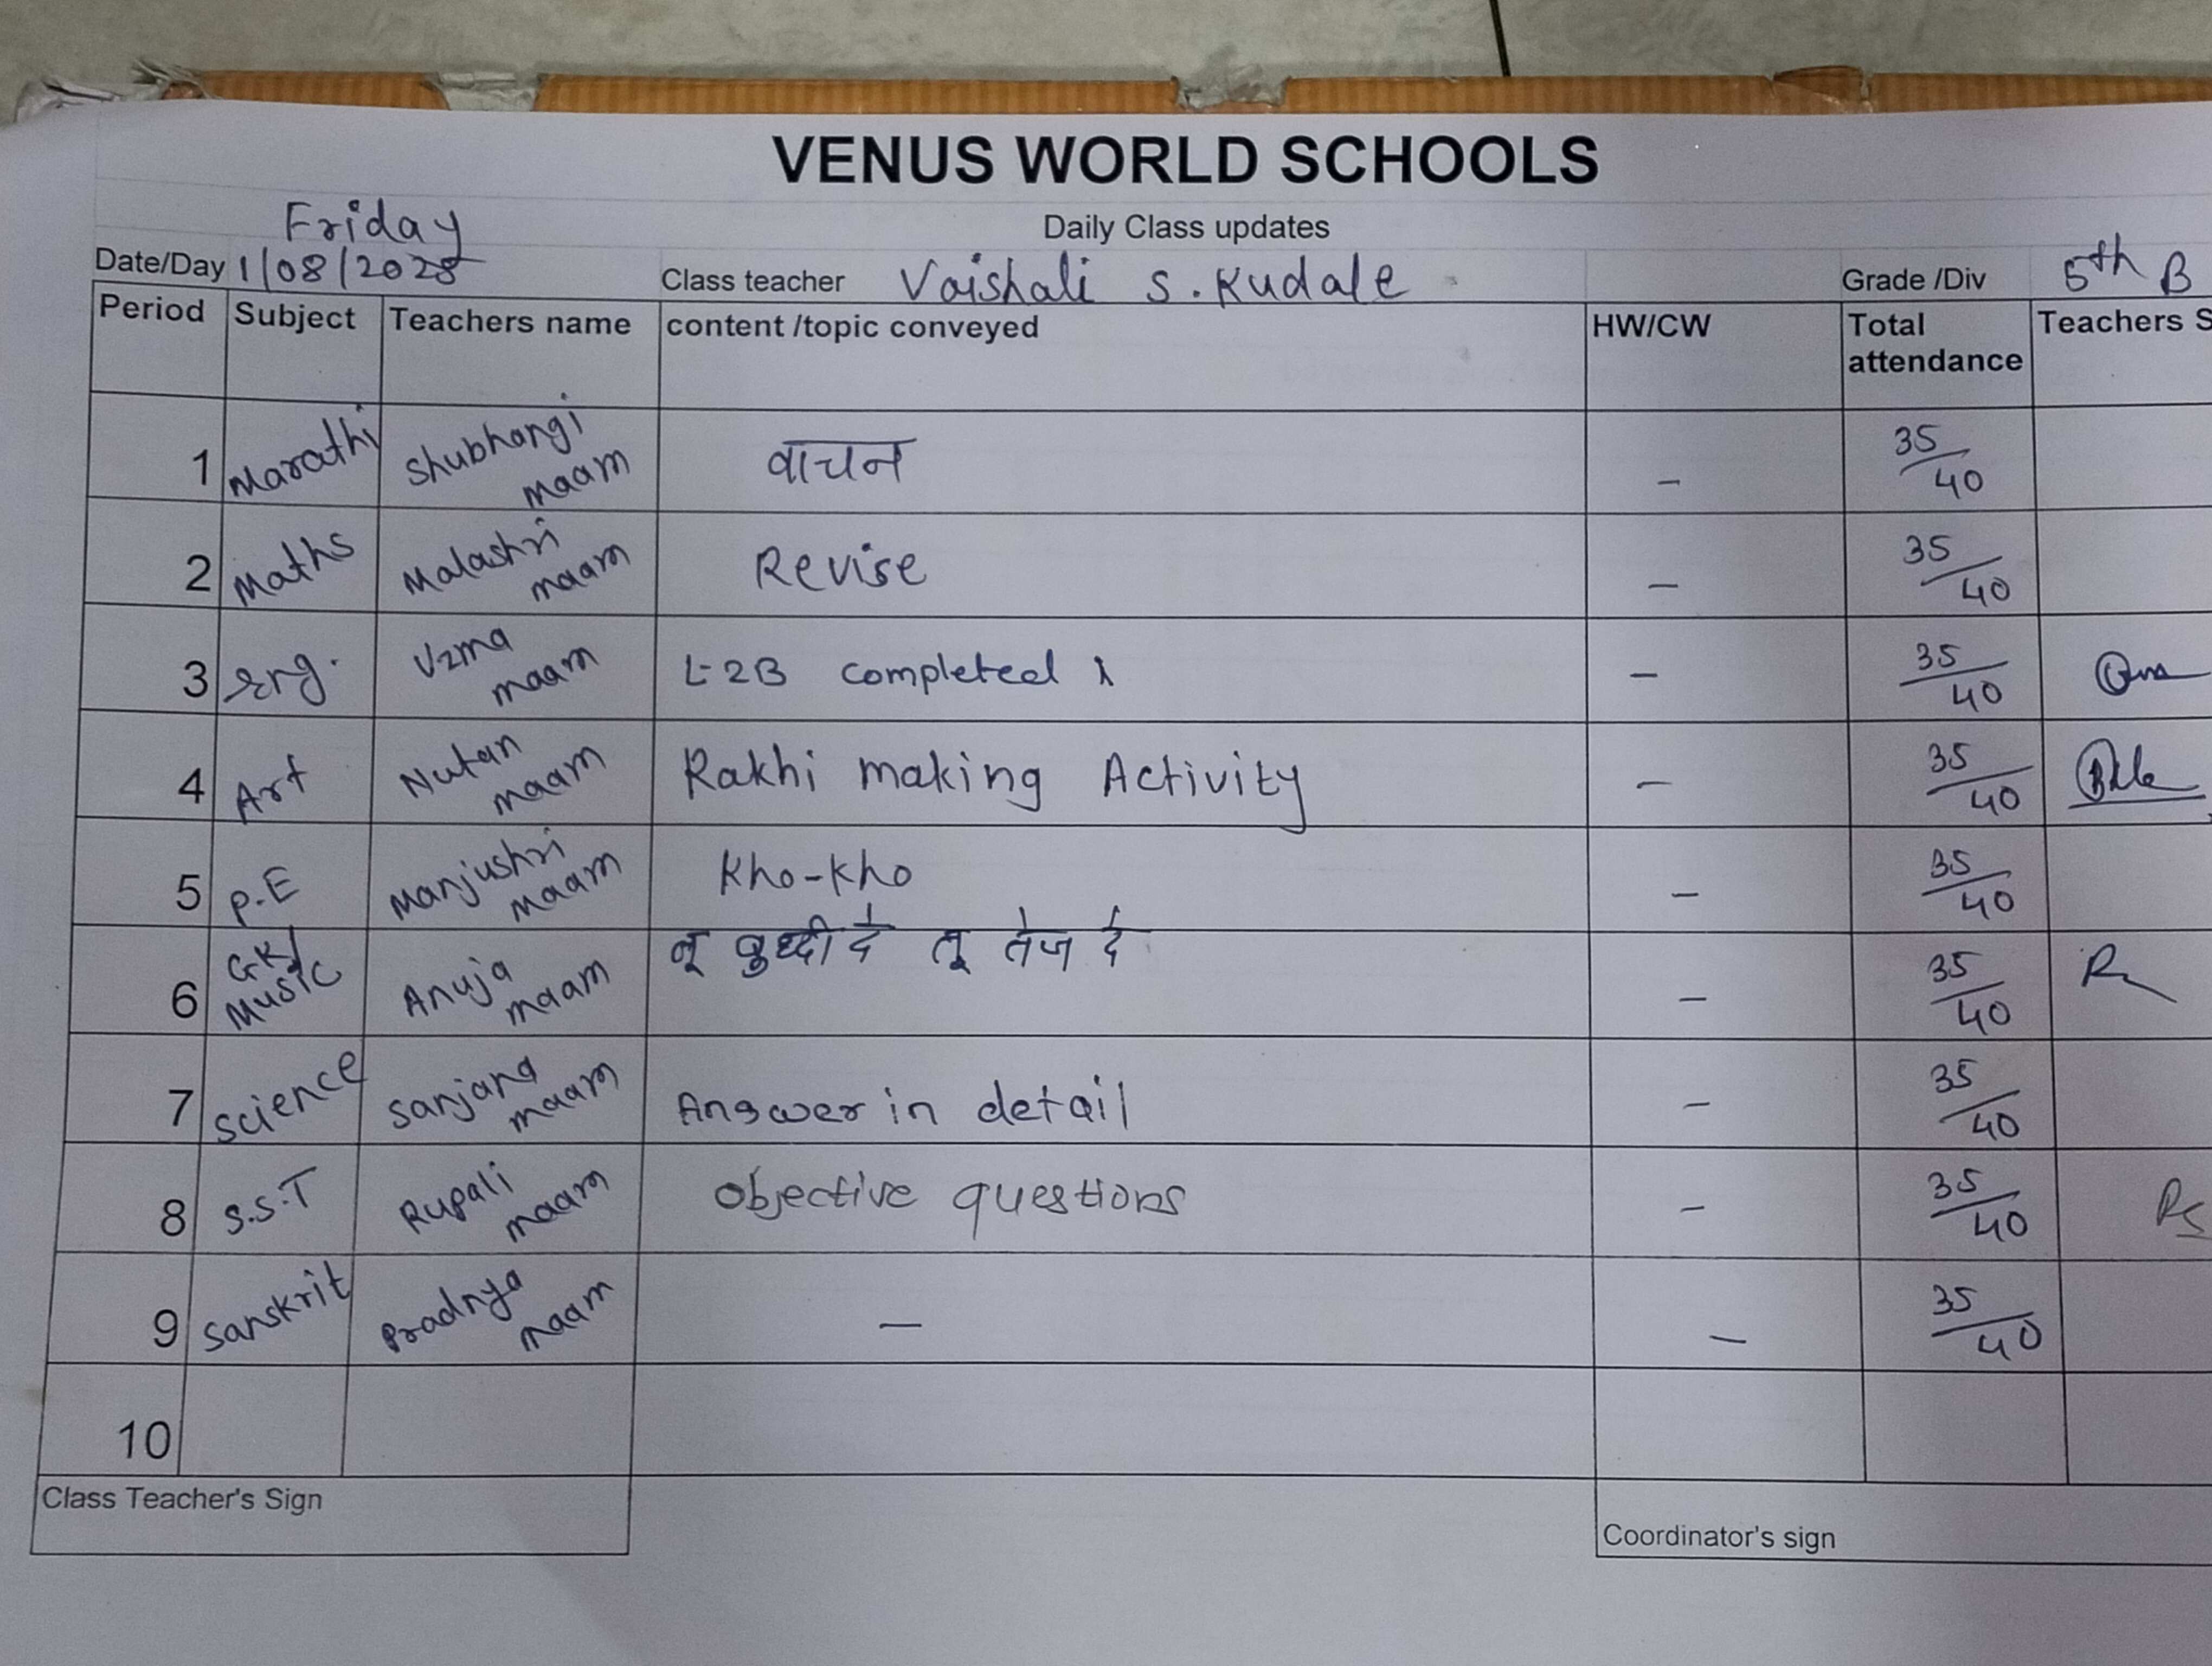 VENUS WORLD SCHOOLS
Daily Class updates
Friday
Date/Day 1/08/2025 Class teacher Vaishali S. Kudale Grade /Div 5th B
Period Subject Teachers name content /topic conveyed HW/CW Total attendance Teachers S
1 Marathi Shubhangi maam वाचन - 35/40
2 Maths Malashri maam Revise - 35/40
3 Eng. Uzma maam L-2B completed - 35/40
4 Art Nutan maam Rakhi making Activity - 35/40
5 P.E Manjushri maam Kho-Kho - 35/40
6 GK/Music Anuja maam तू बुध्दी दे तू तेज दे - 35/40
7 Science Sanjana maam Answer in detail - 35/40
8 S.S.T Rupali maam Objective questions - 35/40
9 Sanskrit Pradnya maam - - 35/40
10
Class Teacher's Sign
Coordinator's sign